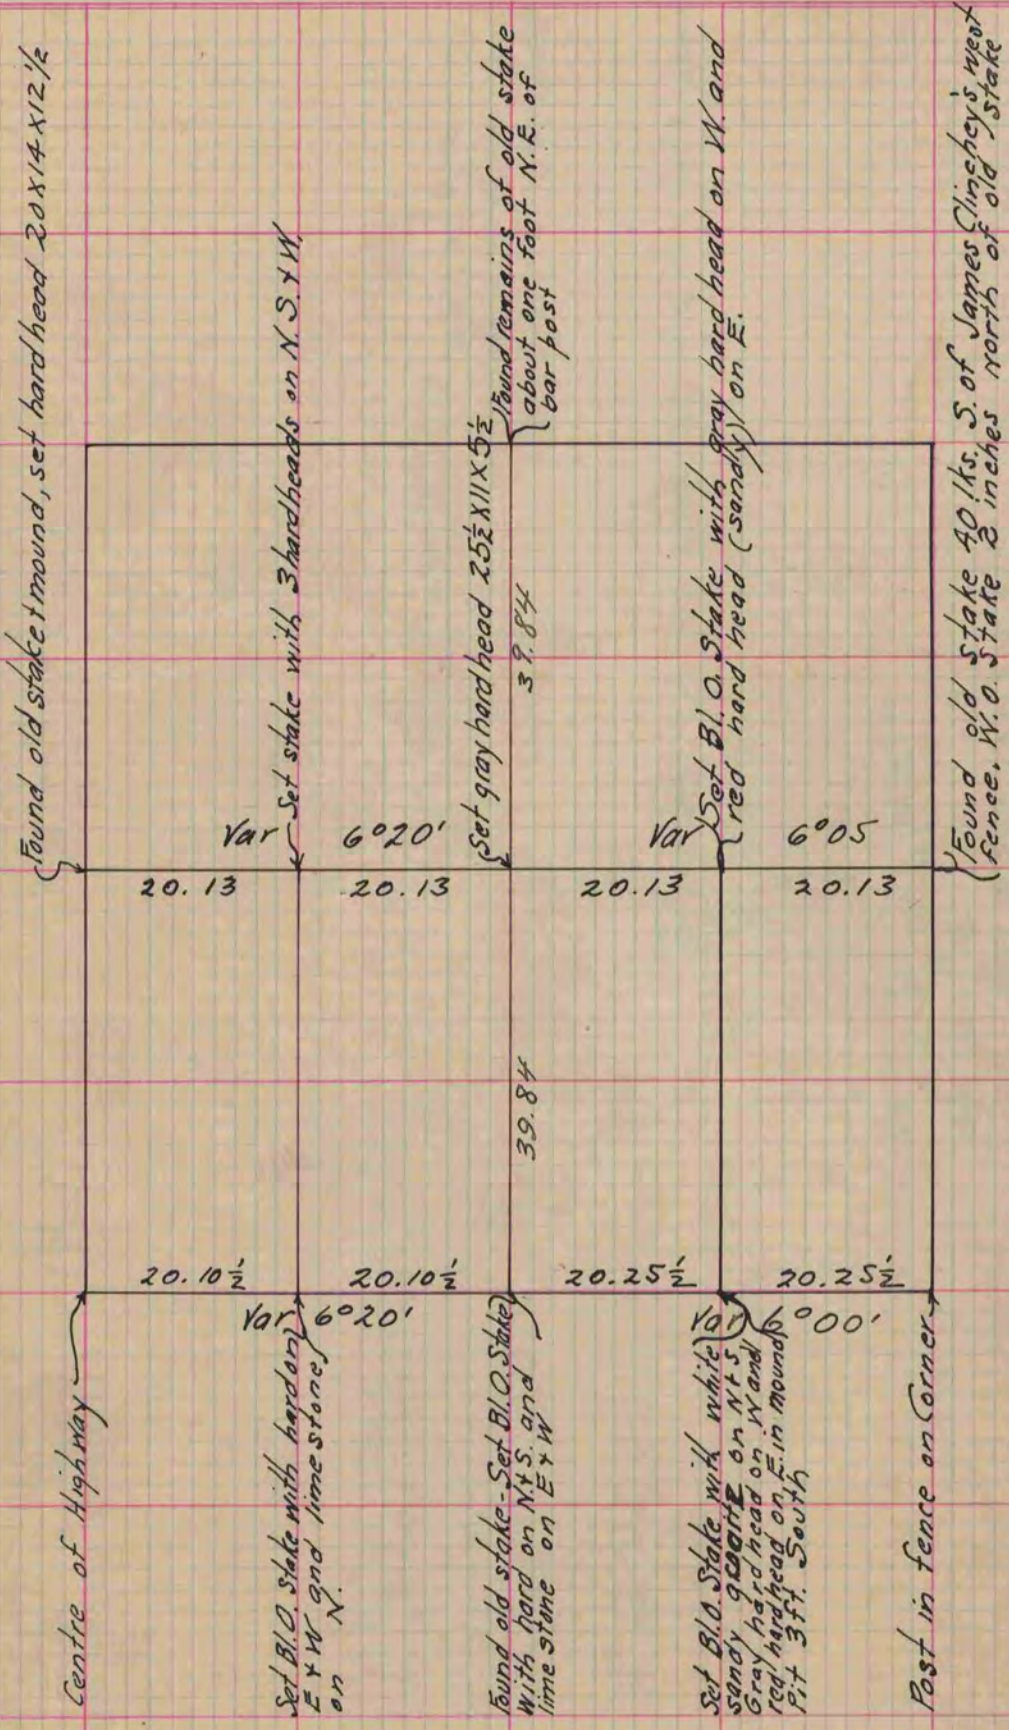 Found old stake + mound, set hard head 20 x 14 x 12 1/2
Found remains of old stake
about one foot N.E. of
bar post
Set stake with 3 hardheads on N. S. + W.
Set gray hard head 25½ x 11 x 5½
39.84
Set Bl. O. Stake with gray hard head on W. and
red hard head (sandy) on E.
Found old stake 40 lks. S. of James Clinchey's west
fence. W.O. Stake 2 inches north of old stake
Var 6°20'
Var 6°05
20.13
20.13
20.13
20.13
39.84
20.10½
20.10½
20.25½
20.25½
Var 6°20'
Var 6°00'
Centre of Highway
Set Bl.O. stake with hard on
E + W and limestone
on N.
Found old stake - Set Bl.O. Stake
With hard on N + S. and
lime stone on E + W
Set Bl.O. Stake with white
sandy on N + S
Gray hard head on W and
red hard head on E. in mound
Pit 3 ft. South
Post in fence on Corner